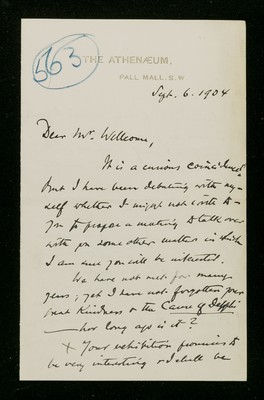 563
THE ATHENÆUM,
PALL MALL. S.W.
Sept. 6. 1904
Dear Mr. Wellcome,
It is a curious coincidence
But I have been debating with my-
self whether I might not write to
you to propose a meeting to talk over
with you some other matter in which
I am sure you will be interested.
We have not met for many
years; yet I have not forgotten your
great kindness on the
how long ago is it?
Your exhibition promises to
be very interesting & I shall be